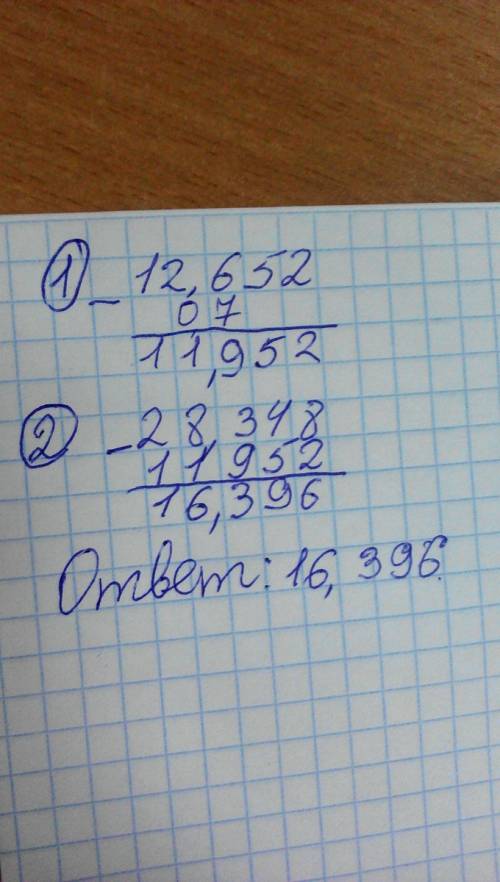 ① - 12,652
07
11,952
② - 28,348
11,952
16,396
Ответ: 16, 396.